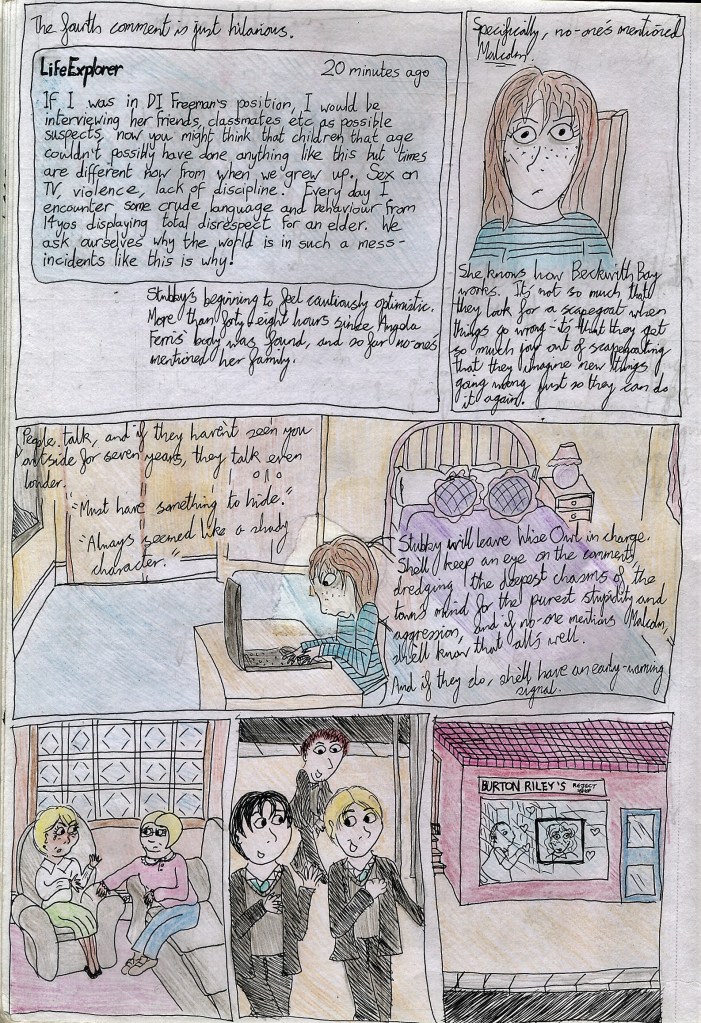 The fourth comment is just hilarious.
LifeExplorer
20 minutes ago
If I was in DI Freeman's position, I would be
interviewing her friends, classmates etc as possible
suspects, now you might think that children that age
couldn't possibly have done anything like this but times
are different now from when we grew up. Sex on
TV, violence, lack of discipline. Every day I
encounter some crude language and behaviour from
14yos displaying total disrespect for an elder. We
ask ourselves why the world is in such a mess-
incidents like this is why!
Stubby's beginning to feel cautiously optimistic.
More than forty-eight hours since Angela
Ferris' body was found, and so far no-one's
mentioned her family.
Specifically, no-one's mentioned
Malcolm.
She knows how Beckwith Bay
works. It's not so much that
they look for a scapegoat when
things go wrong - it's that they get
so much joy out of scapegoating
that they imagine new things
going wrong just so they can do
it again.
People talk, and if they haven't seen you
outside for seven years, they talk even
louder.
"Must have something to hide."
"Always seemed like a shady
character."
Stubby will leave Wise Owl in charge.
She'll keep an eye on the comments,
dredging the deepest chasms of the
town's mind for the purest stupidity and
aggression, and if no-one mentions Malcolm,
she'll know that all's well.
And if they do, she'll have an early-warning
signal.
BURTON RILEY'S REJECT SHOP